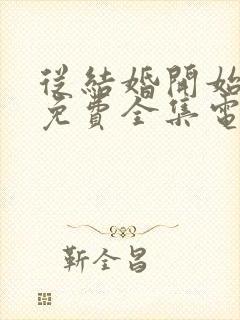 從結婚開始
免費全集電
靳全昌